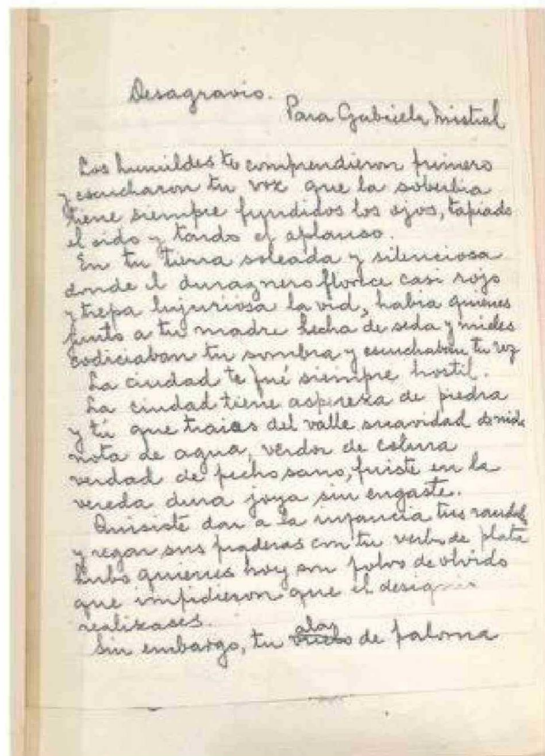 Desagravio.
Para Gabriela Mistral
Los humildes te comprendieron primero
y escucharon tu voz que la soberbia
tiene siempre fundidos los ojos, tapiado
el oido y tardo el aplauso.
En tu tierra soleada y silenciosa
donde el duraznero florece casi rojo
y trepa lujuriosa la vid, habia quienes
junto a tu madre hecha de seda y mieles
codiciaban tu sombra y escuchaban tu voz
La ciudad te fué siempre hostil.
La ciudad tiene aspereza de piedra
y tú que traias del valle suavidad de nido
nota de agua, verdor de colina
verdad de pecho sano, fuiste en la
vereda dura joya sin engaste.
Quisiste dar a la infancia tus raudales
y regar sus praderas con tu verbo de plata
hubo quienes hoy son polvo de olvido
que impidieron que el designio
realizases.
Sin embargo, tu alas de paloma